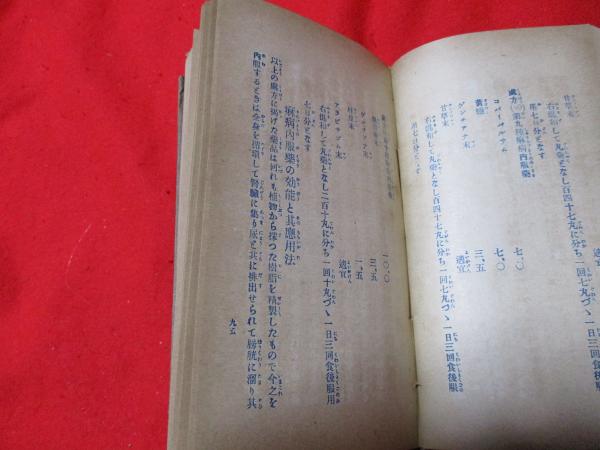 適宜
甘草末
右混和して丸藥となし百四十七丸に分ち一回七丸づゝ一日三回食後服
用七日分となす
處方
第
種麻病內服藥
コパイバルサム
七、〇
黃蠟
三、五
ゲンチアナ末
適宜
甘草末
右混和して丸藥となし百四十七丸に分ち一回七丸づゝ一日三回食後服
用七日分となす
一〇、〇
三、五
ゲンチアナ末
一、五
甘草末
適宜
アラビヤゴム末
右混和して丸藥となし二百十丸に分ち一回十丸づゝ一日三回食後服用
七日分となす
痳病內服藥の効能と其應用法
以上の處方に揭げた藥品は何れも植物から採つた樹脂を精製したもので今之を
內服するときは全身を循環して腎臟に集り尿と共に排出せられて膀胱に溜り其